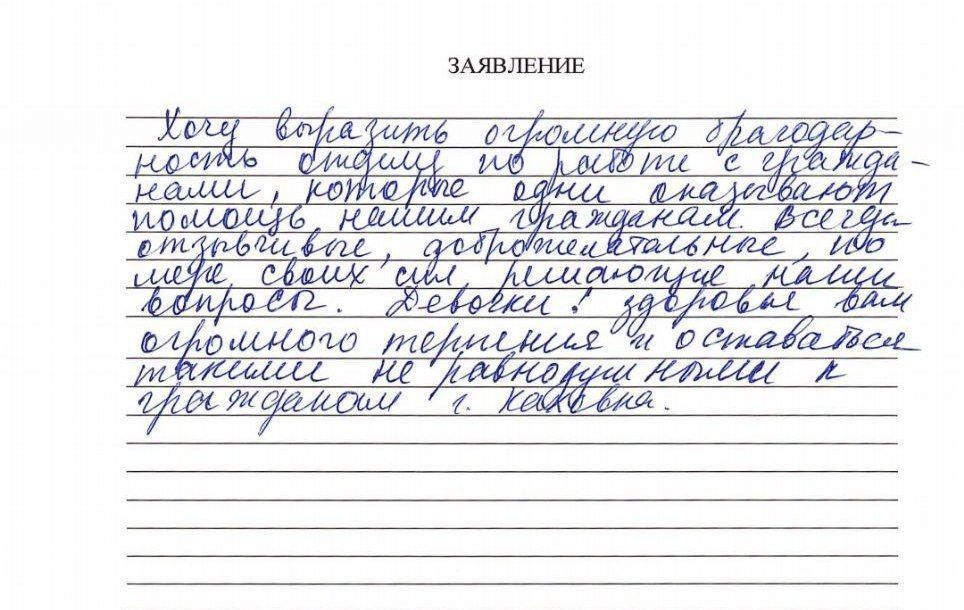 ЗАЯВЛЕНИЕ
Хочу выразить огромную благодар-
ность отделу по работе с гражда-
нами, которые одни оказывают
помощь нашим гражданам. Всегда
отзывчивые, доброжелательные, по
мере своих сил решающие наши
вопросы. Девочки! здоровья вам
огромного терпения и оставаться
такими не равнодушными к
гражданам г. Каховка.